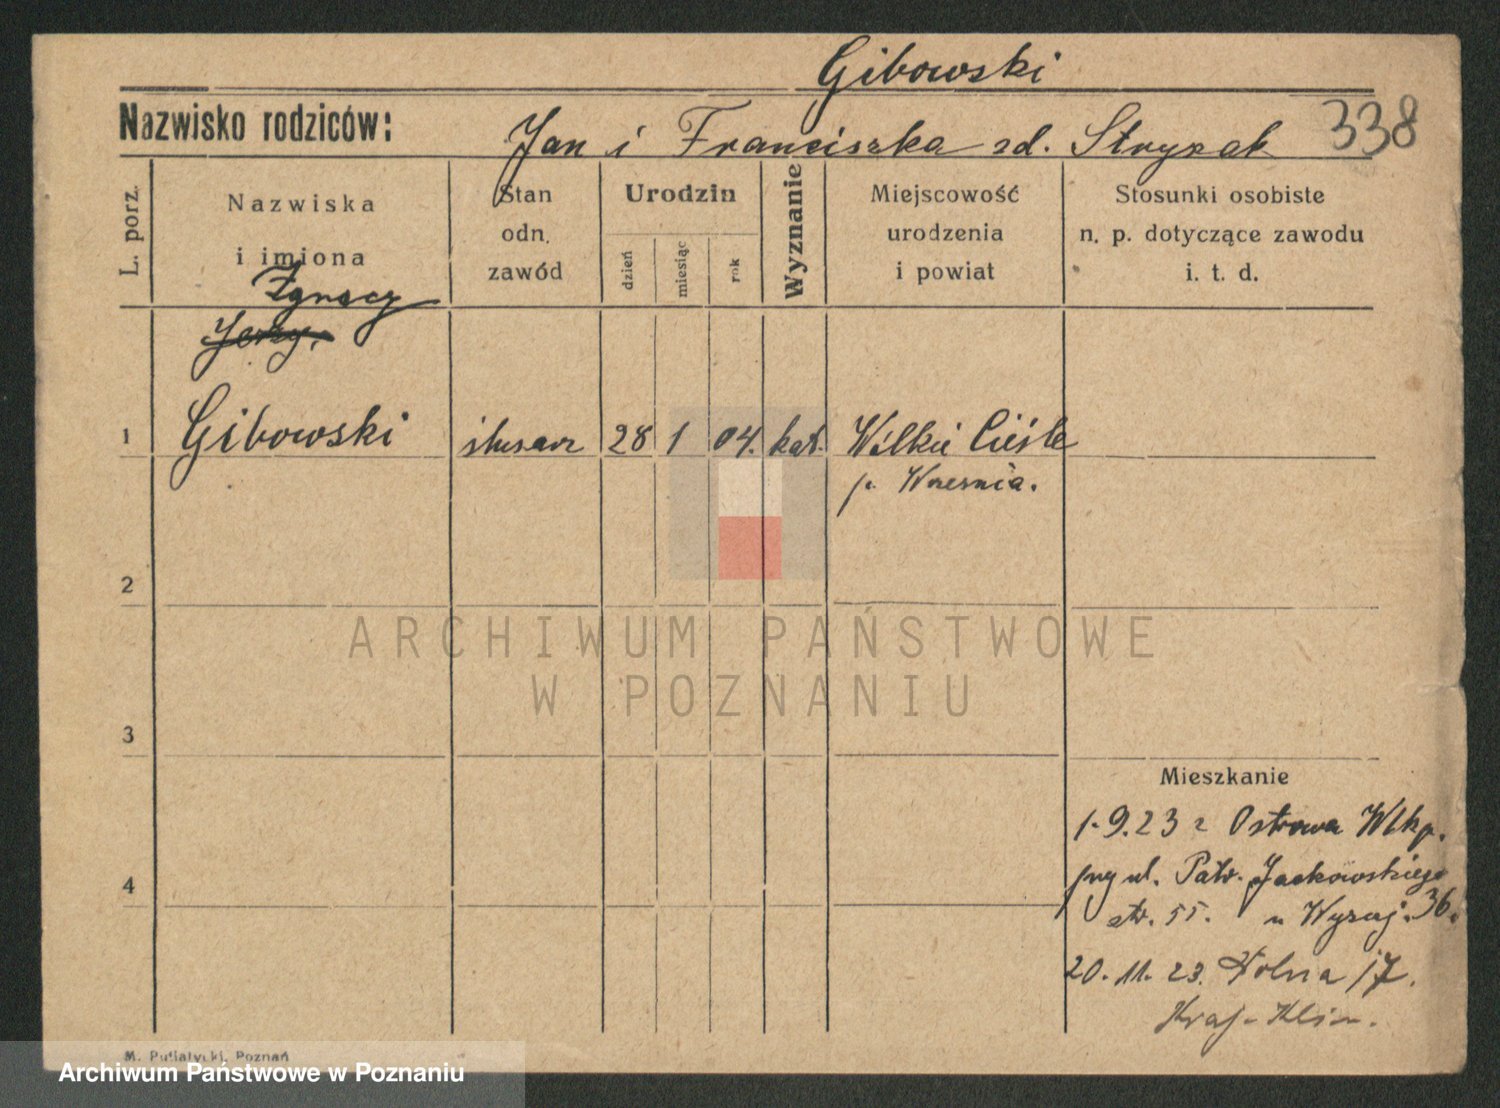 Gibowski
Nazwisko rodziców:
Jan i Franciszka zd. Stryzak 338
L. porz.
Nazwiska
i imiona
Stan
odn.
zawód
Urodzin
dzień
miesiąc
rok
Wyznanie
Miejscowość
urodzenia
i powiat
Stosunki osobiste
n. p. dotyczące zawodu
i. t. d.
Ignacy
Jerzy.
1 Gibowski ślusarz 28 1 04. kat. Wilkie Cieśle
p. Wrzesnia.
2
3
4
Mieszkanie
1.9.23 z Ostrowa Wlkp.
przy ul. Patr. Jackowskiego
str. 55. u 36.
20.11.23. Wolna 17.
M. Putiatycki, Poznań
ARCHIWUM PAŃSTWOWE
W POZNANIU
Archiwum Państwowe w Poznaniu